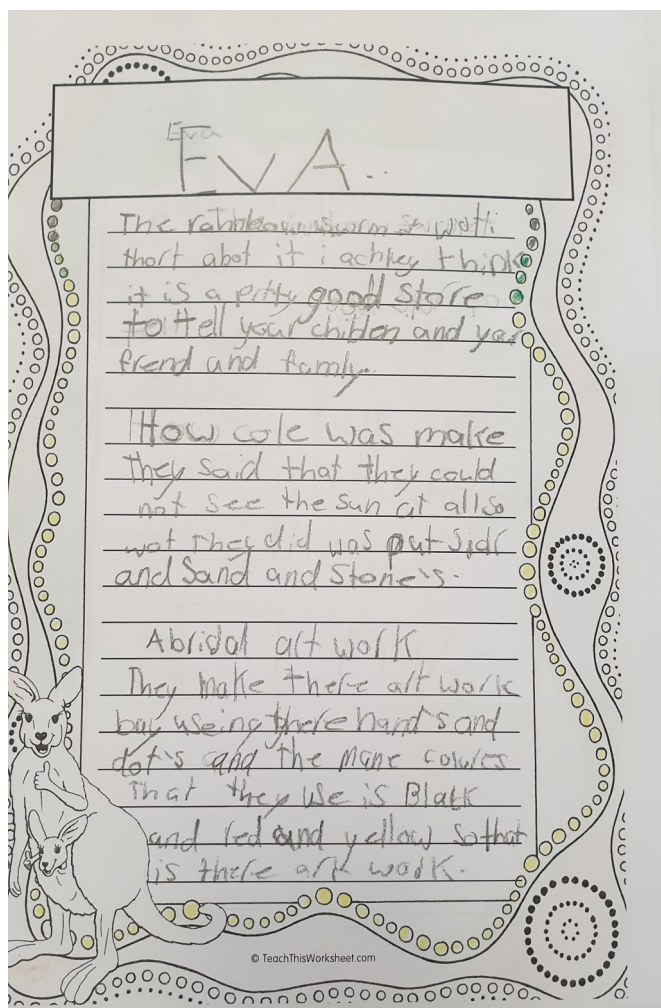 Eva
EvA..
The
thort abot it i achkey think
it is a pritty good Store
to tell your chiblen and your
frend and famly.
How cole was make
They said that they could
not see the sun at all so
wot They did was put
and Sand and Stone's.
Abridal art work
They make there art work
buy useing there hand's and
dot's and the mane colures
That they use is Black
and red and yellow so that
is there art work.
© TeachThisWorksheet.com